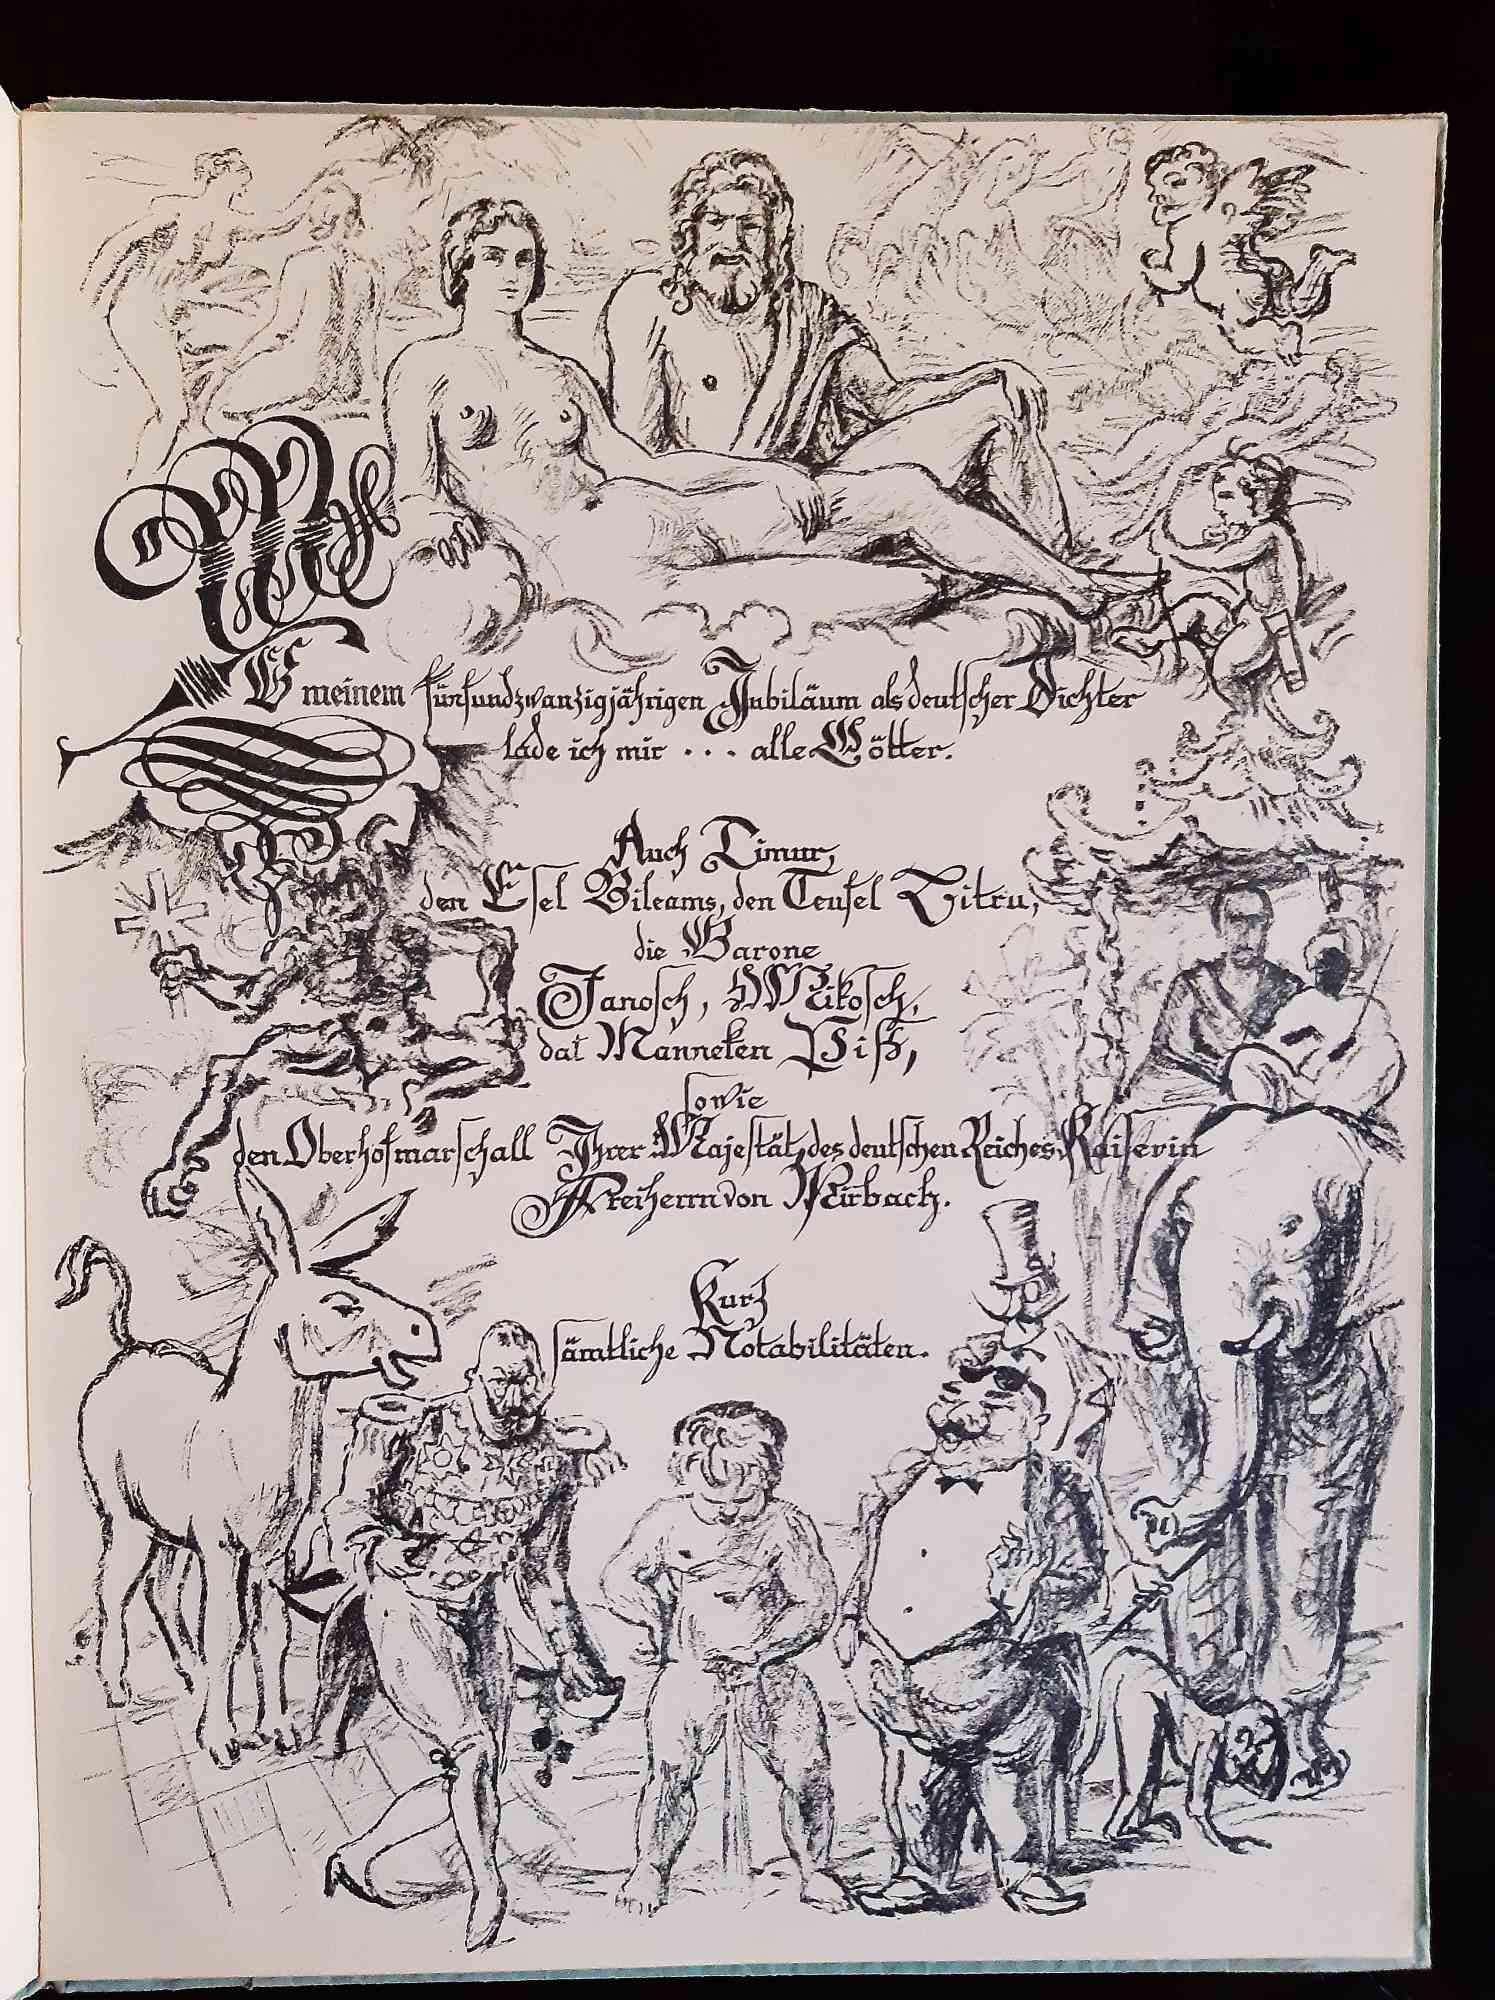 Zu meinem fünfundzwanzigjährigen Jubiläum als deutscher Dichter
lade ich mir . . . alle Götter.
Auch Timur,
den Esel Bileams, den Teufel Bitru,
die Barone
Janosch, Mikosch,
dat Manneken Piß,
sowie
den Oberhofmarschall Ihrer Majestät, des deutschen Reiches Kaiserin
Freiherrn von Mirbach.
Kurz
sämtliche Notabilitäten.